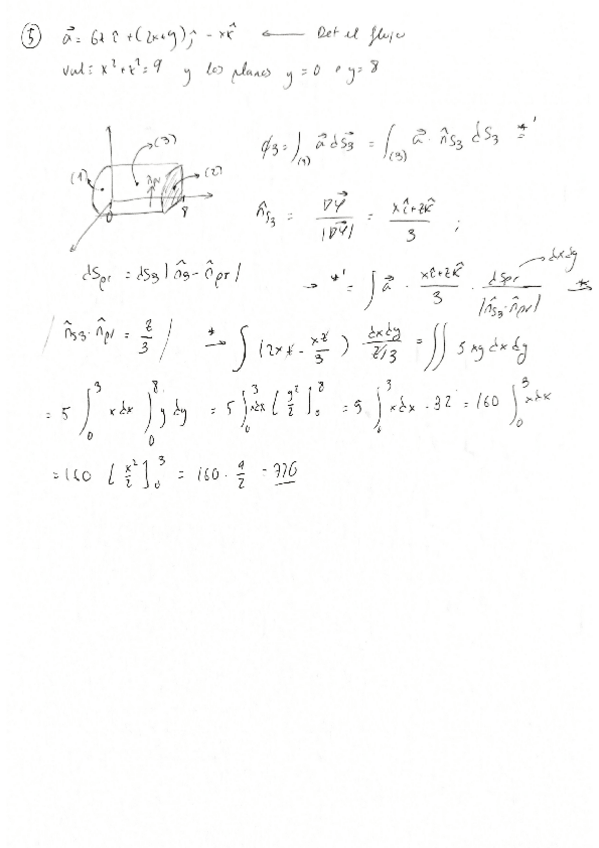 ⑤ a⃗ = 6z î + (2x+y) ĵ - x k̂ ← Det el flujo
x² + z² = 9 y los planos y = 0 e y = 8
(1) (3) (2) n̂pr 0 8
ϕ3 = ∫(3) a⃗ dS⃗3 = ∫(3) a⃗ · n̂S3 dS3 *'
n̂S3 = ∇⃗Ψ / |∇⃗Ψ| = (x î + z k̂) / 3 ;
dSpr = dS3 | n̂3 · n̂pr | → *' = ∫ a⃗ · (x î + z k̂) / 3 · dSpr / |n̂S3 · n̂pr| → dxdy *→
/ n̂S3 · n̂pr = z/3 / *→ ∫ ( - xz/3 ) · dxdy / z/3 = ∫∫ 5 x dx dy
= 5 ∫₀³ x dx ∫₀⁸ y dy = 5 ∫₀³ x dx [ y²/2 ]₀⁸ = 5 ∫₀³ x dx · 32 = 160 ∫₀³ x dx
= 160 [ x²/2 ]₀³ = 160 · 9/2 = 720